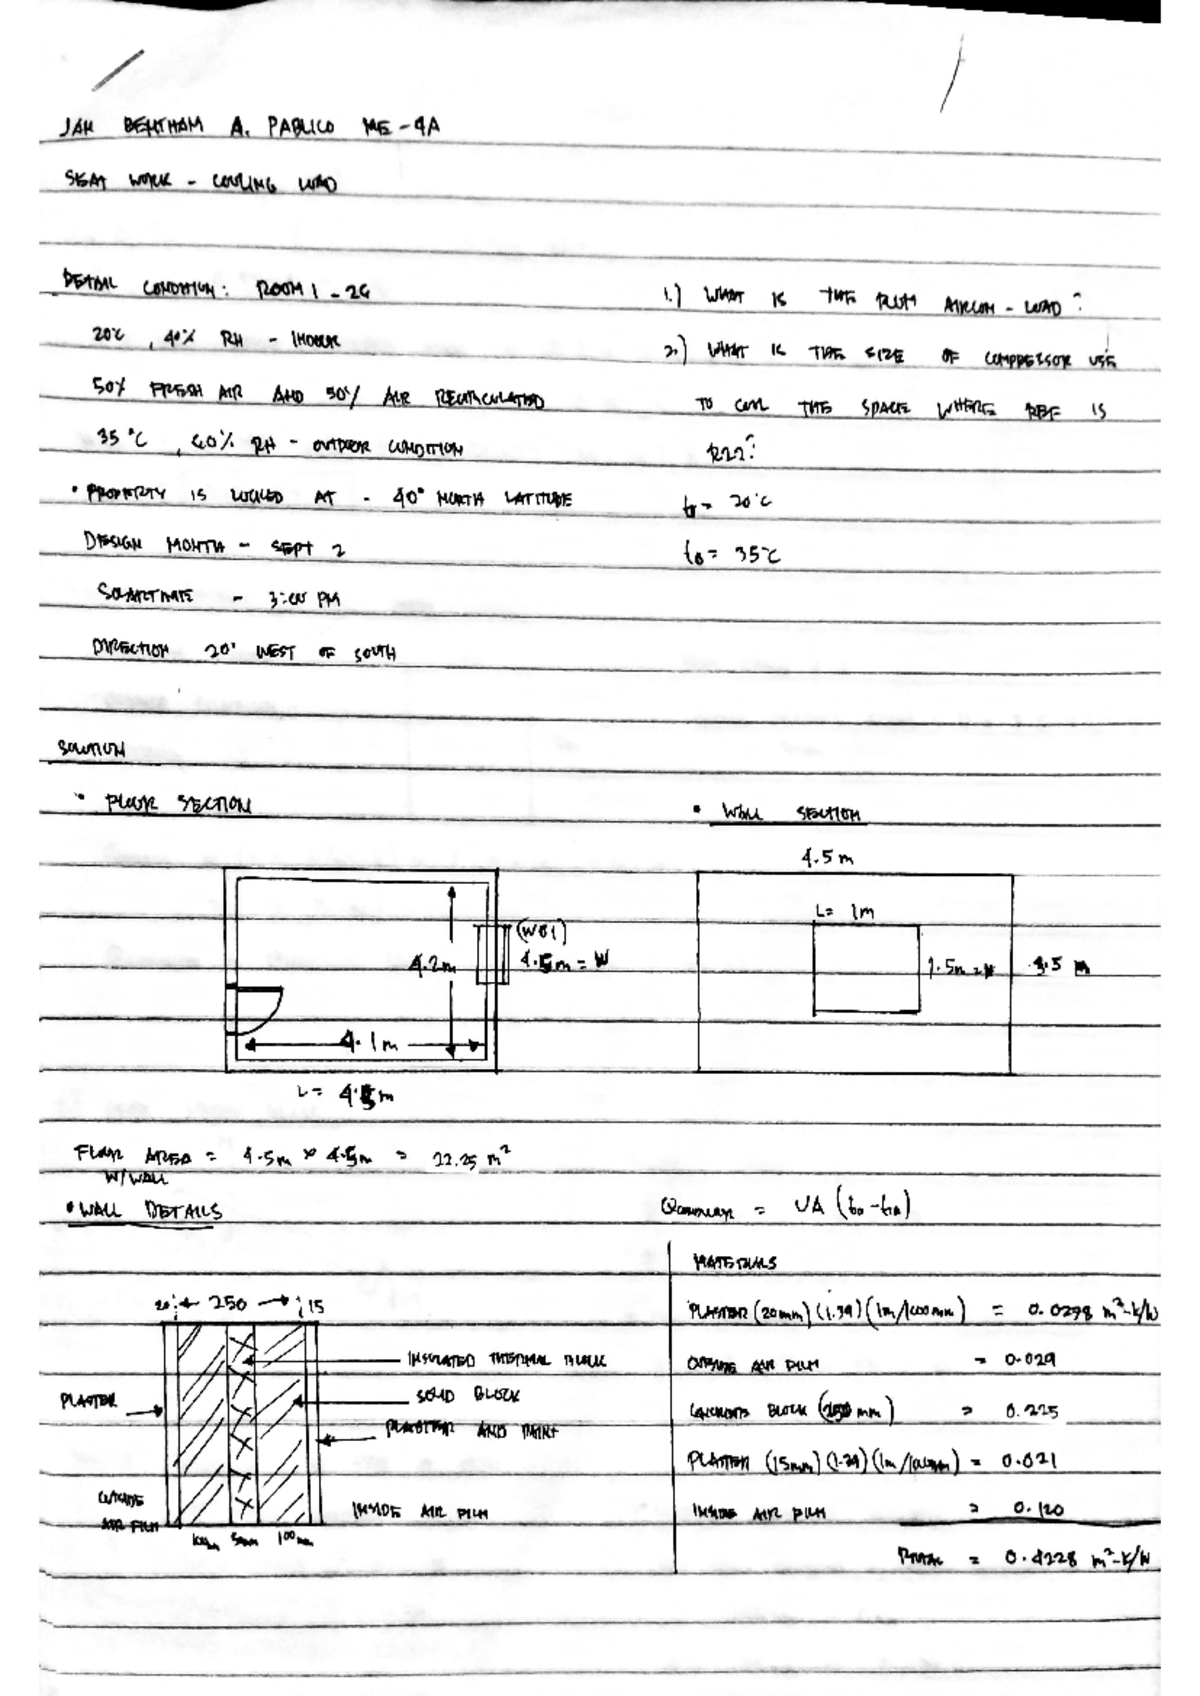 JAN BENTHAM A. PABLICO ME-4A
SEAT WORK - COOLING LOAD
DETAIL CONDITION: ROOM 1 - 2G
20°C, 40% RH - INDOOR
50% FRESH AIR AND 50% AIR RECIRCULATED
35°C, 60% RH - OUTDOOR CONDITION
• PROPERTY IS LOCATED AT - 40° NORTH LATITUDE
DESIGN MONTH - SEPT 2
SOLARTIME - 3:00 PM
DIRECTION 20° WEST OF SOUTH
1.) WHAT IS THE AIRCON - LOAD?
2.) WHAT IS THE SIZE OF COMPRESSOR USE
TO COOL THIS SPACE WHERE REF IS
R22?
tr = 20°C
to = 35°C
SOLUTION
• FLOOR SECTION
4.2m
(W01)
4.5m = W
4.1m
L = 4.5m
• WALL SECTION
4.5m
L = 1m
1.5m = W
3.5 m
FLOOR AREA = 4.5m × 4.5m = 22.25 m²
W/WALL
• WALL DETAILS
20 250 15
INSULATED THERMAL BLOCK
SOLID BLOCK
PLASTER
PLASTER AND PAINT
OUTSIDE
AIR FILM
INSIDE AIR FILM
100mm 50mm 100mm
= UA (to - tr)
MATERIALS
PLASTER (20mm) (1.39) (1m/1000mm) = 0.0278 m²-K/W
OUTSIDE AIR FILM = 0.029
CONCRETE BLOCK (250 mm) = 0.225
PLASTER (15mm) (1.39) (1m/1000mm) = 0.021
INSIDE AIR FILM = 0.120
RTOTAL = 0.4228 m²-K/W